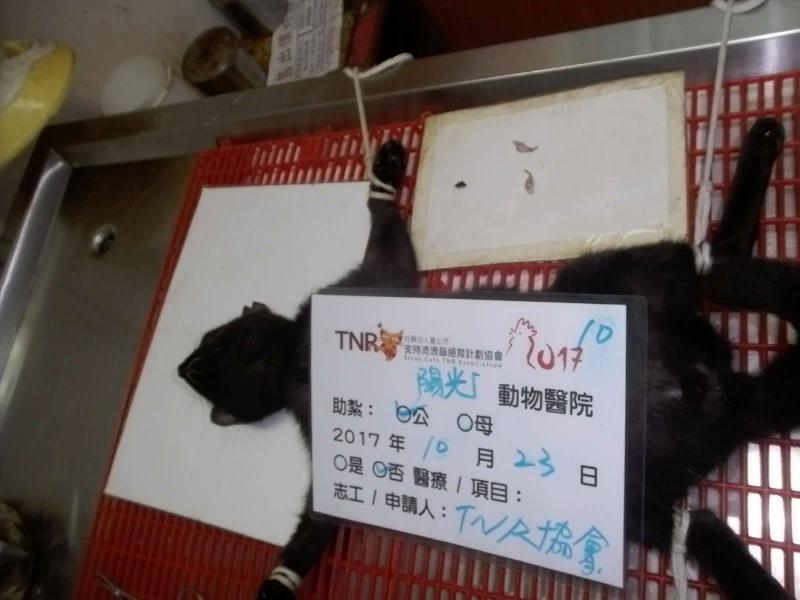 TNR 社團法人臺北市
支持流浪貓絕育計劃協會
Stray Cats TNR Association
2017 10
陽光 動物醫院
助紮： ○公 ○母
2017 年 10 月 23 日
○是 ○否 醫療 / 項目：
志工 / 申請人： TNR協會